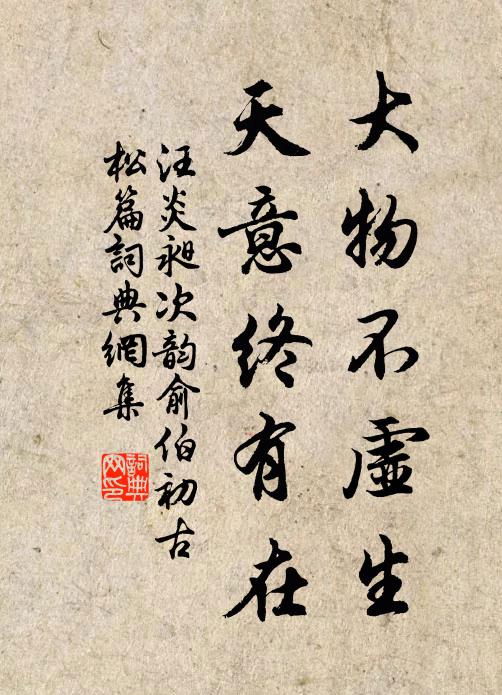 大物不虛生
天意終有在
汪炎昶次韵俞伯初古
松篇詞典網集
詞典網印